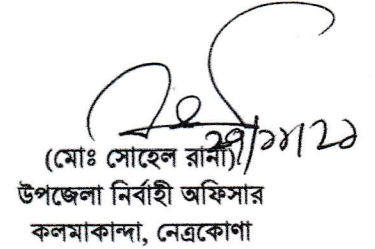 (মোঃ সোহেল রানা)
উপজেলা নির্বাহী অফিসার
কলমাকান্দা, নেত্রকোণা